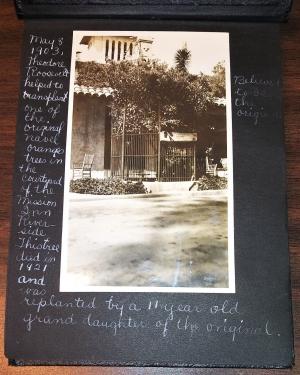 May 8
1903,
Theodore
Roosevelt
helped to
transplant
one of
the
original
navel
orange
trees in
the
courtyard
of the
Mission
Inn
River-
side
This tree
died in
1921
and
was
replanted by a 11 year old
grand daughter of the original.
Believed
to be
the
original